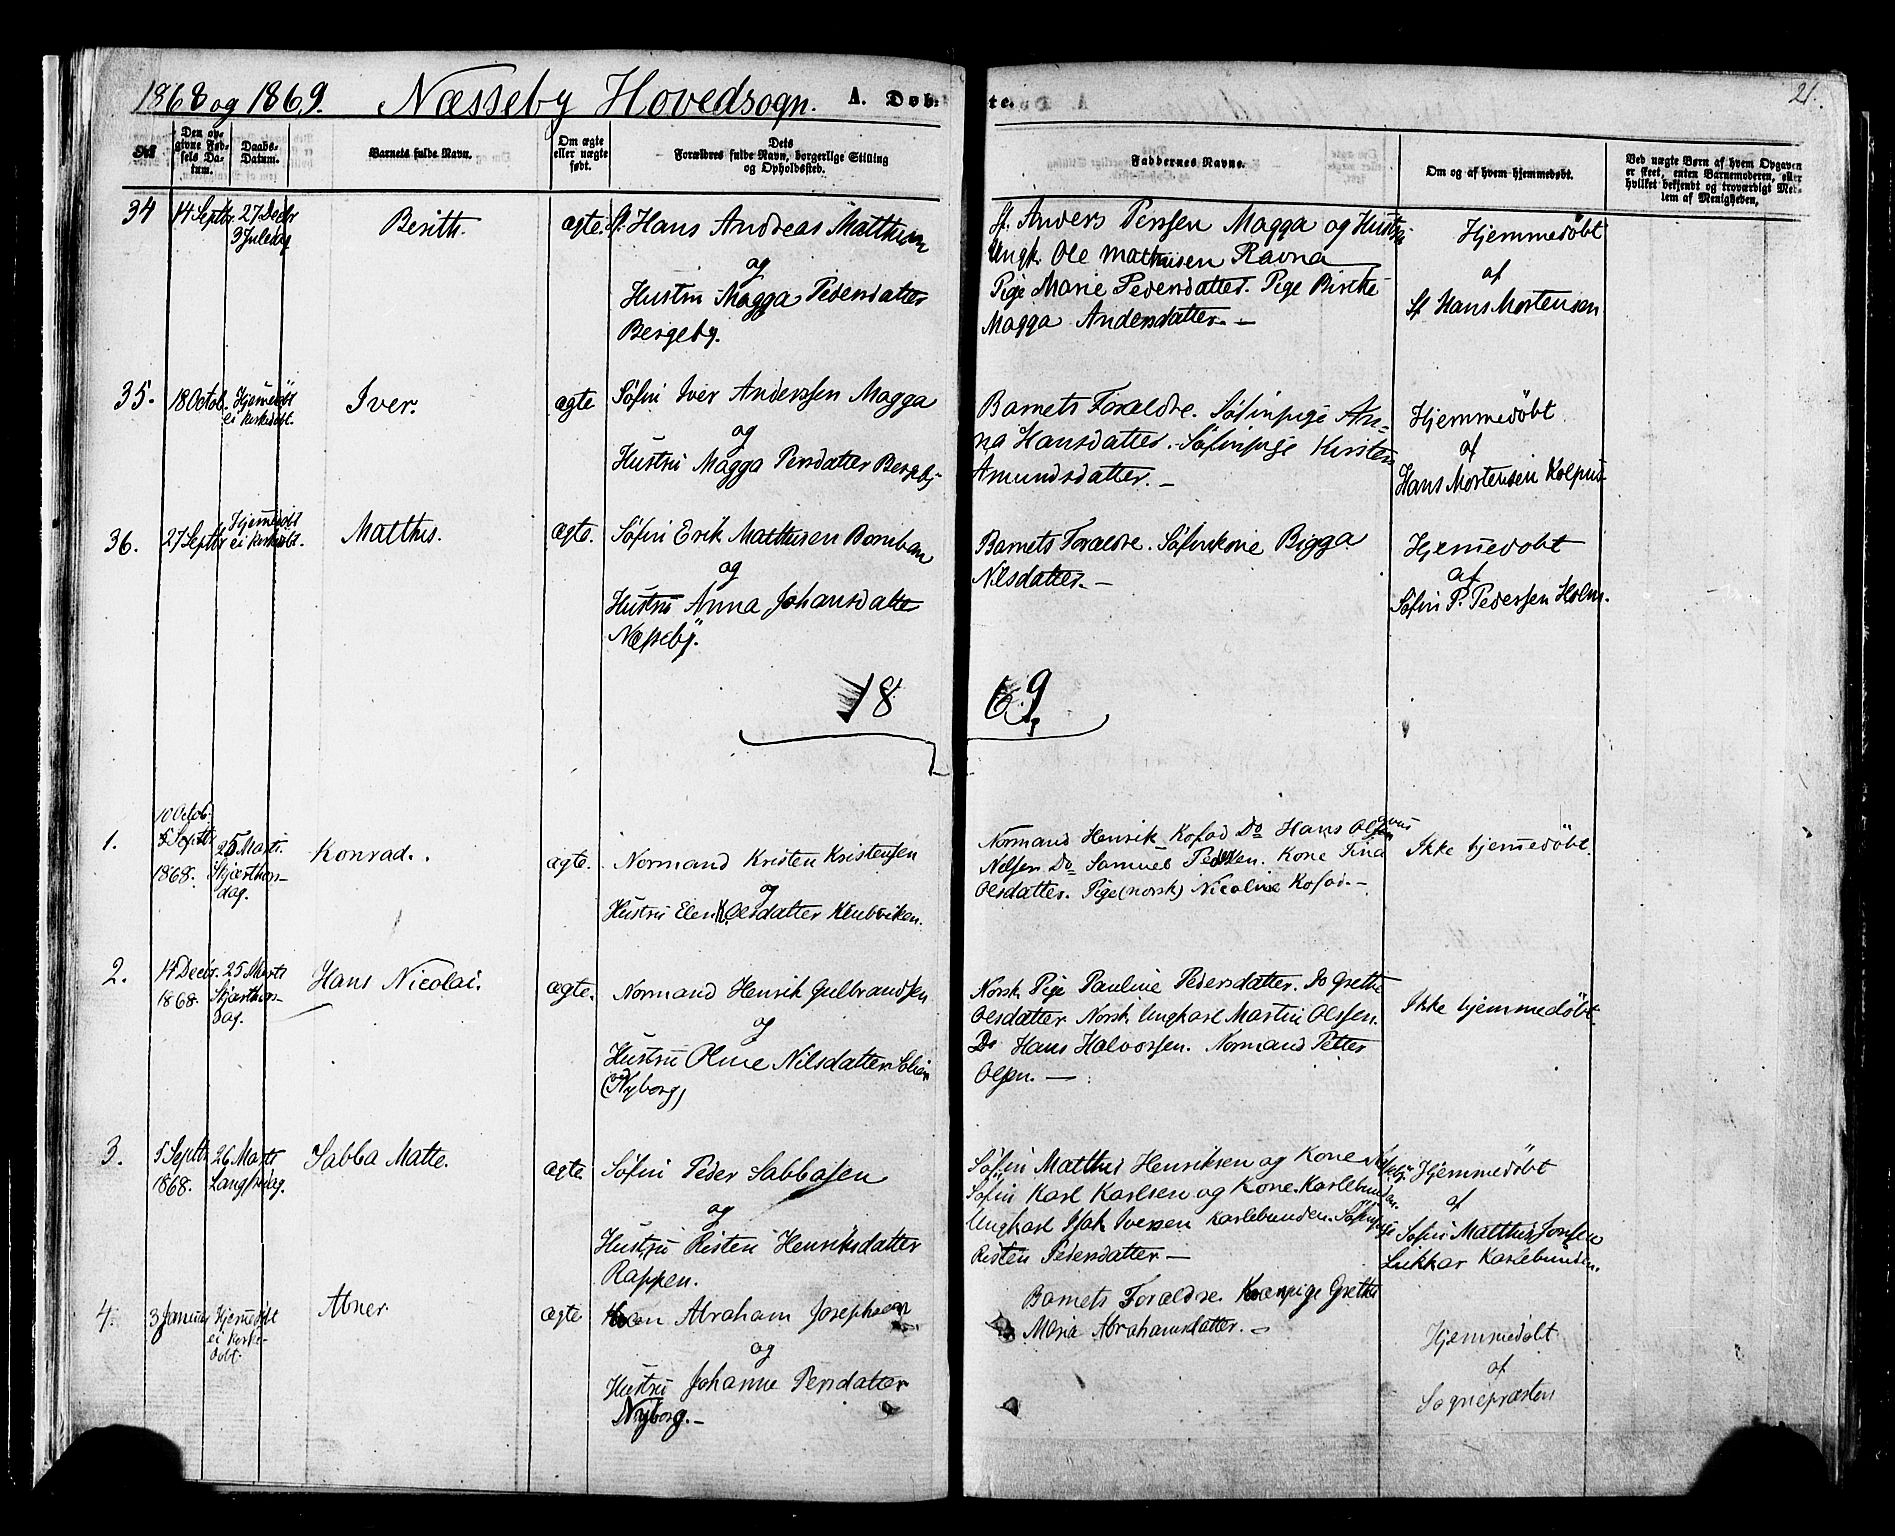 1868 og 1869. Næsseby Hovedsogn. A. Døbte. 21.
No
Den opgivne Fødsels Datum.
Daabs-Datum.
Barnets fulde Navn.
Om ægte eller uægte født.
Dets Forældres fulde Navn, borgerlige Stilling og Opholdssted.
Faddernes Navne.
Om og af hvem hjemmedøbt.
Ved uægte Børn af hvem Opgaven er skeet, enten Barnemoderen, eller hvilket bekjendt og troværdigt Medlem af Menigheden.
34 14 Septbr. 27 Decbr
3 Juledag
Berith.
ægte.
Sf. Hans Andreas Matthisen
og
Hustru Magga Pedersdatter
Bergeby.
Sf. Anders Perssen Magga og Hustru
Ungk. Ole Mathisen Ravna
Pige Marie Pedersdatter. Pige Birethe
Magga Andersdatter. —
Hjemmedöbt
af
Sf Hans Mortensen
35. 18 Octob. Hjemedöbt
ei kirkedöbt.
Iver.
ægte
Söfin Iver Anderssen Magga
og
Hustru Magga Persdatter Bergeby
Barnets Forældre. Söfinpige An=
na Hansdatter. Söfinpige Kirsten
Amundsdatter. —
Hjemmedöbt
af
Hans Mortensen Kolpus
36. 27 Septbr Hjemedöbt
ei kirkedöbt.
Matthis.
ægte.
Söfin Erik Matthisen Bomban
og
Hustru Anna Johansdatter
Næsseby.
Barnets Forældre. Söfinkone Bigga
Nilsdatter. —
Hjemedobt
af
Söfin P. Pedersen Holm.
1869.
1. 10 Octob.
5 Septb
1868.
25 Marts.
Skjærthors-
dag.
Konrad.
ægte.
Normand Kristen Kristensen
og
Hustru Elen Olsdatter Klubviken.
Normand Henrik Kofod Do Hans
Nelsen Do Samuel Pedersen. Kone Tina
Olsdatter. Pige (norsk) Nicoline Kofod. —
Ikke hjemedöbt.
2. 14 Decbr.
1868.
25 Marts
Skjærthors-
dag.
Hans Nicolai.
ægte.
Normand Henrik Gulbrandsen
og
Hustru Oline Nilsdatter
(Nyborg)
Norsk Pige Pauline Pedersdatter. Do Grethe
Olsdatter. Norsk Ungkarl Martin Olssen.
Do Hans Halvorsen. Normand Petter
Olsen. —
Ikke hjemmedöbt.
3. 5 Septbr
1868.
26 Marts
Langfredag.
Sabba Matte.
ægte.
Söfin Peder Sabbasen
og
Hustru Risten Henriksdatter
Rappen.
Söfin Matthis Henriksen og Kone
Söfin Karl Karlsen og Kone. Karlebunden.
Ungkarl Isak Iversen Karlebunden. Söfinpige
Risten Pedersdatter —
Hjemmedöbt
af
Söfin Matthis
Lukkar Karlebunden.
4. 3 Januar Hjemedöbt
ei kirke-
döbt.
Abner.
ægte
Abraham Josephsen
og
Hustru Johanne Persdatter
Nyborg. —
Barnets Forældre. Kvænpige Grethe
Maria Abrahamsdatter. —
Hjemmedöbt
af
Sognepræsten